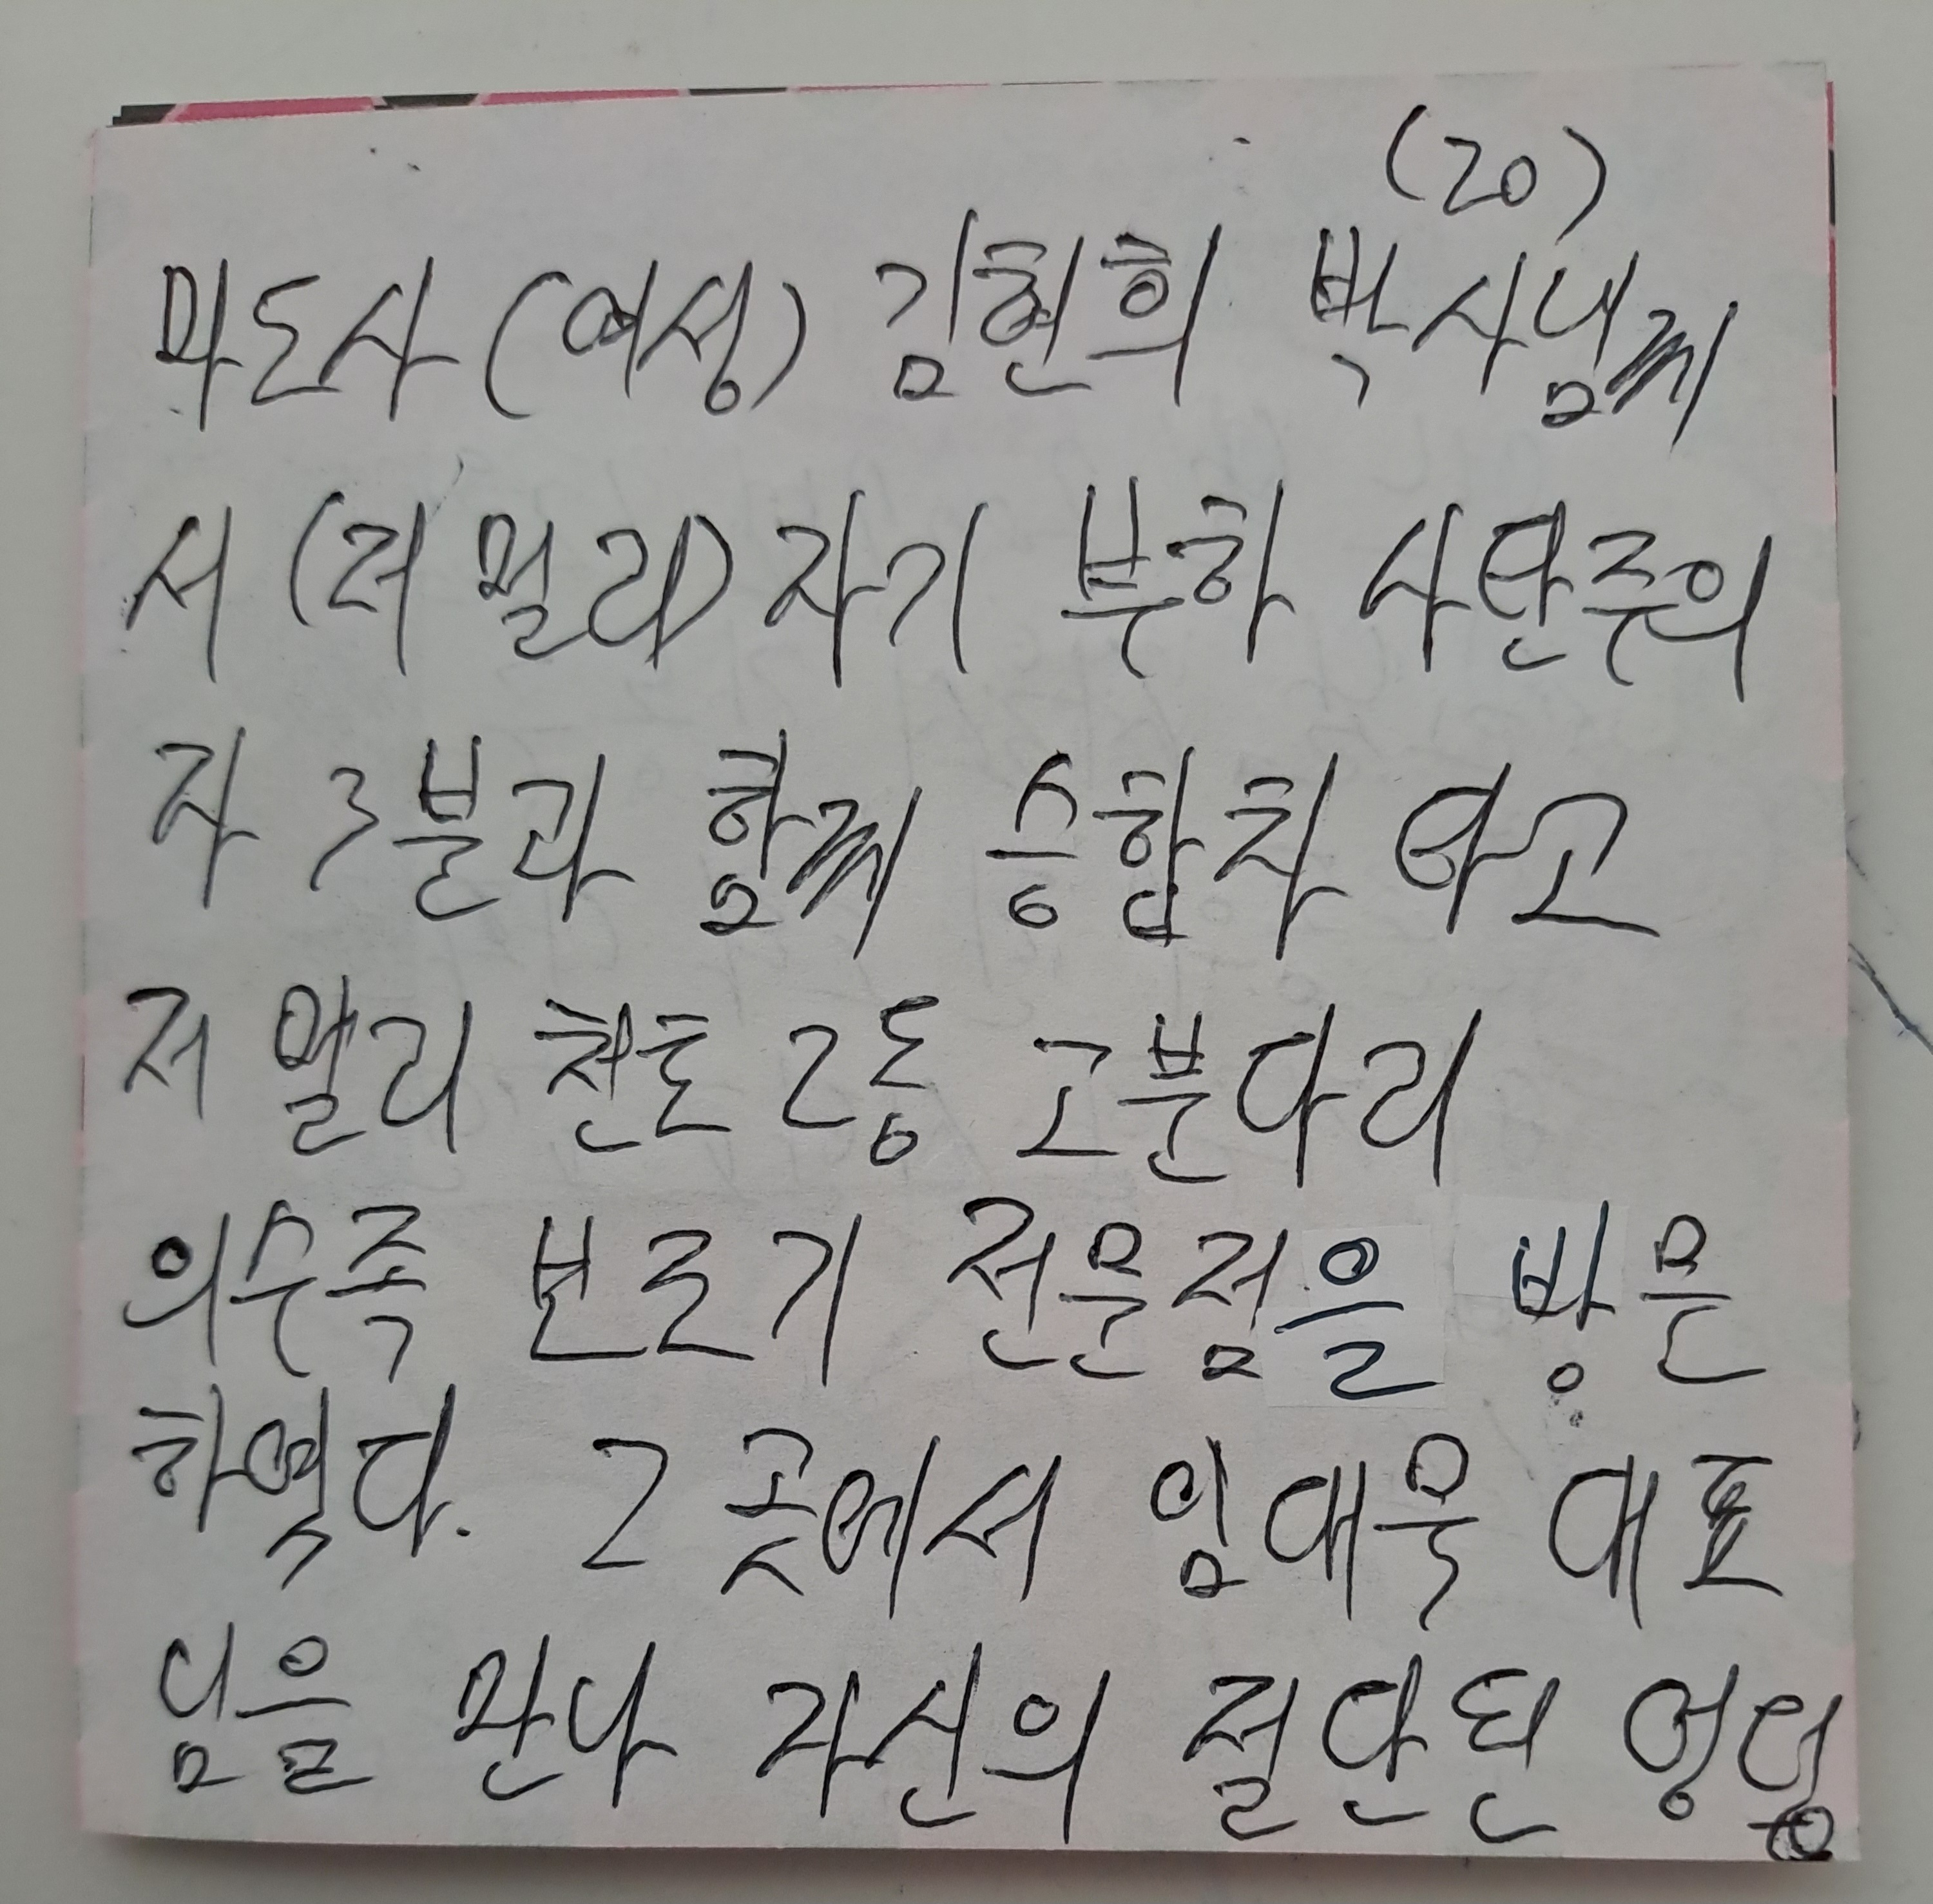 (20)
마도사 (여성) 김현희 박사님께
서 (저 멀리) 자기 부하 사탄주의
자 3분과 함께 승합차 타고
저 멀리 천호 2동 고분다리
의수족 보조기 전문점을 방문
하였다. 그 곳에서 임대욱 대표
님을 만나 자신의 절단된 엉덩